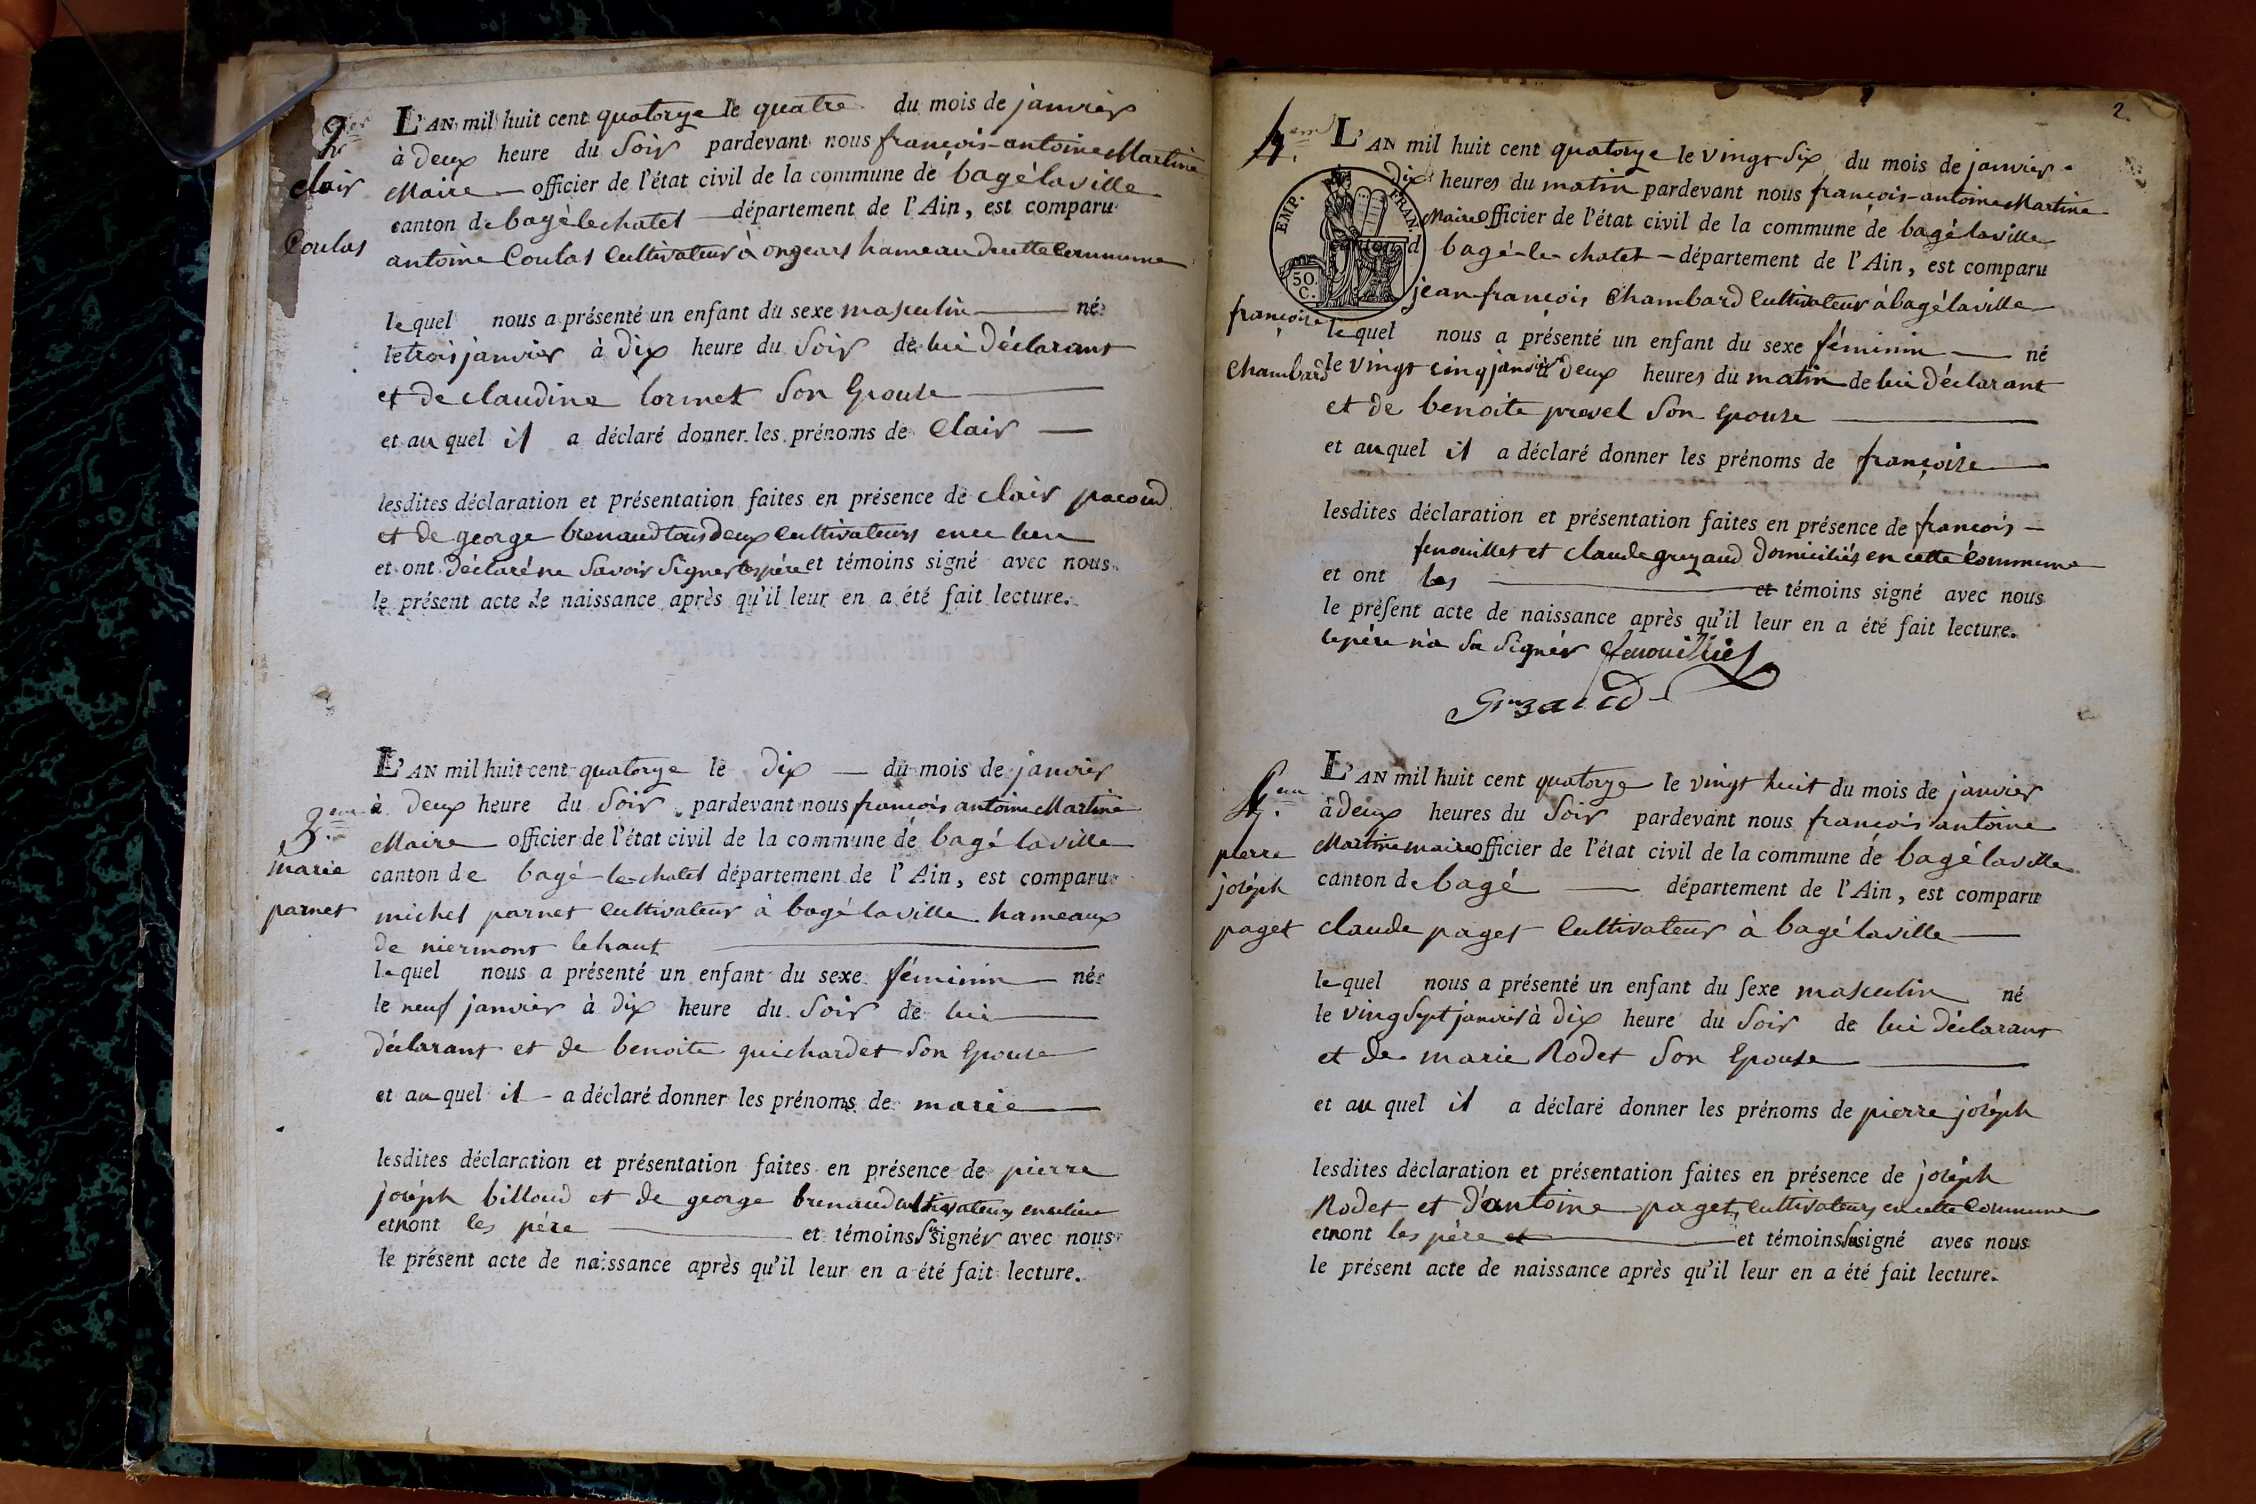 clair
Coulas
L'AN mil huit cent quatorze le quatre du mois de janvier
à deux heure du Soir pardevant nous françois-antoine Martine
Maire officier de l'état civil de la commune de bagé laville
canton de bagé le chatel département de l'Ain, est comparu
antoine Coulas Cultivateur à onjears hameau de cette Commune
lequel nous a présenté un enfant du sexe masculin né
le trois janvier à dix heure du Soir de lui déclarant
et de claudine lormet Son Epouse
et au quel il a déclaré donner les prénoms de Clair
lesdites déclaration et présentation faites en présence de clair pacoud
et de george brenaud tous deux Cultivateurs en ce lieu
et ont déclaré ne Savoir Signer les père et témoins signé avec nous
le présent acte de naissance après qu'il leur en a été fait lecture.
3eme
marie
parnet
L'AN mil huit cent quatorze le dix du mois de janvier
à deux heure du Soir pardevant nous francois antoine Martine
Maire officier de l'état civil de la commune de bagé laville
canton de bagé-le-chatel département de l'Ain, est comparu
michel parnet Cultivateur à bagé laville hameaux
de niermont lehaut
lequel nous a présenté un enfant du sexe féminin né
le neuf janvier à dix heure du Soir de lui
déclarant et de benoite guichardet Son Epouse
et au quel il a déclaré donner les prénoms de marie
lesdites déclaration et présentation faites en présence de pierre
joséph billoud et de george brenaud cultivateurs en ce lieu
et n'ont les père et témoins Su signér avec nous
le présent acte de naissance après qu'il leur en a été fait lecture.
2
4.eme
EMP. FRAN.
50 C.
françoise
Chambard
L'AN mil huit cent quatorze le vingt Six du mois de janvier
dix heures du matin pardevant nous françois-antoine Martine
Maire officier de l'état civil de la commune de bagé laville
canton d bagé-le-chatel département de l'Ain, est comparu
jean françois Chambard Cultivateur à bagé laville
lequel nous a présenté un enfant du sexe féminin né
le vingt cinq janvier à deux heures du matin de lui déclarant
et de benoite prevel Son Epouse
et au quel il a déclaré donner les prénoms de françoise
lesdites déclaration et présentation faites en présence de françois
fenouillet et claude gruzaud domiciliés en cette Commune
et ont les et témoins signé avec nous
le présent acte de naissance après qu'il leur en a été fait lecture.
le père n'a Su Signér fenouillet
pierre
joséph
paget
L'AN mil huit cent quatorze le vingt huit du mois de janvier
à deux heures du Soir pardevant nous francois antoine
Martine maire officier de l'état civil de la commune de bagé laville
canton de bagé département de l'Ain, est comparu
claude paget Cultivateur à bagé laville
lequel nous a présenté un enfant du sexe masculin né
le ving Sept janvier à dix heure du Soir de lui déclarant
et de marie Rodet Son Epouse
et au quel il a déclaré donner les prénoms de pierre joséph
lesdites déclaration et présentation faites en présence de joséph
Rodet et d'antoine paget, Cultivateurs en cette Commune
et n'ont les père et et témoins Su signé avec nous
le présent acte de naissance après qu'il leur en a été fait lecture.